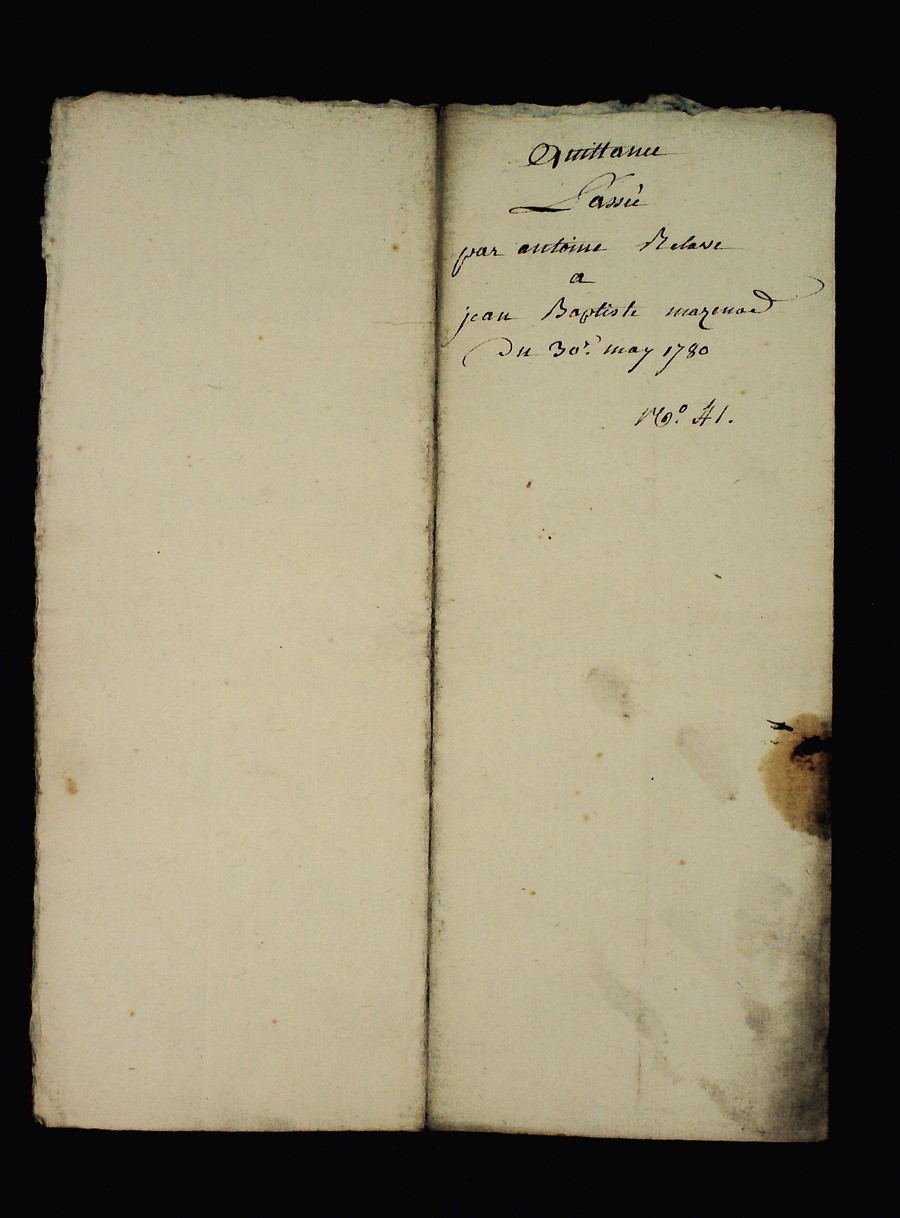 Quittance
Passée
par antoine Relave
a
jean Baptiste mazenod
Du 30e. may 1780
No. 41.